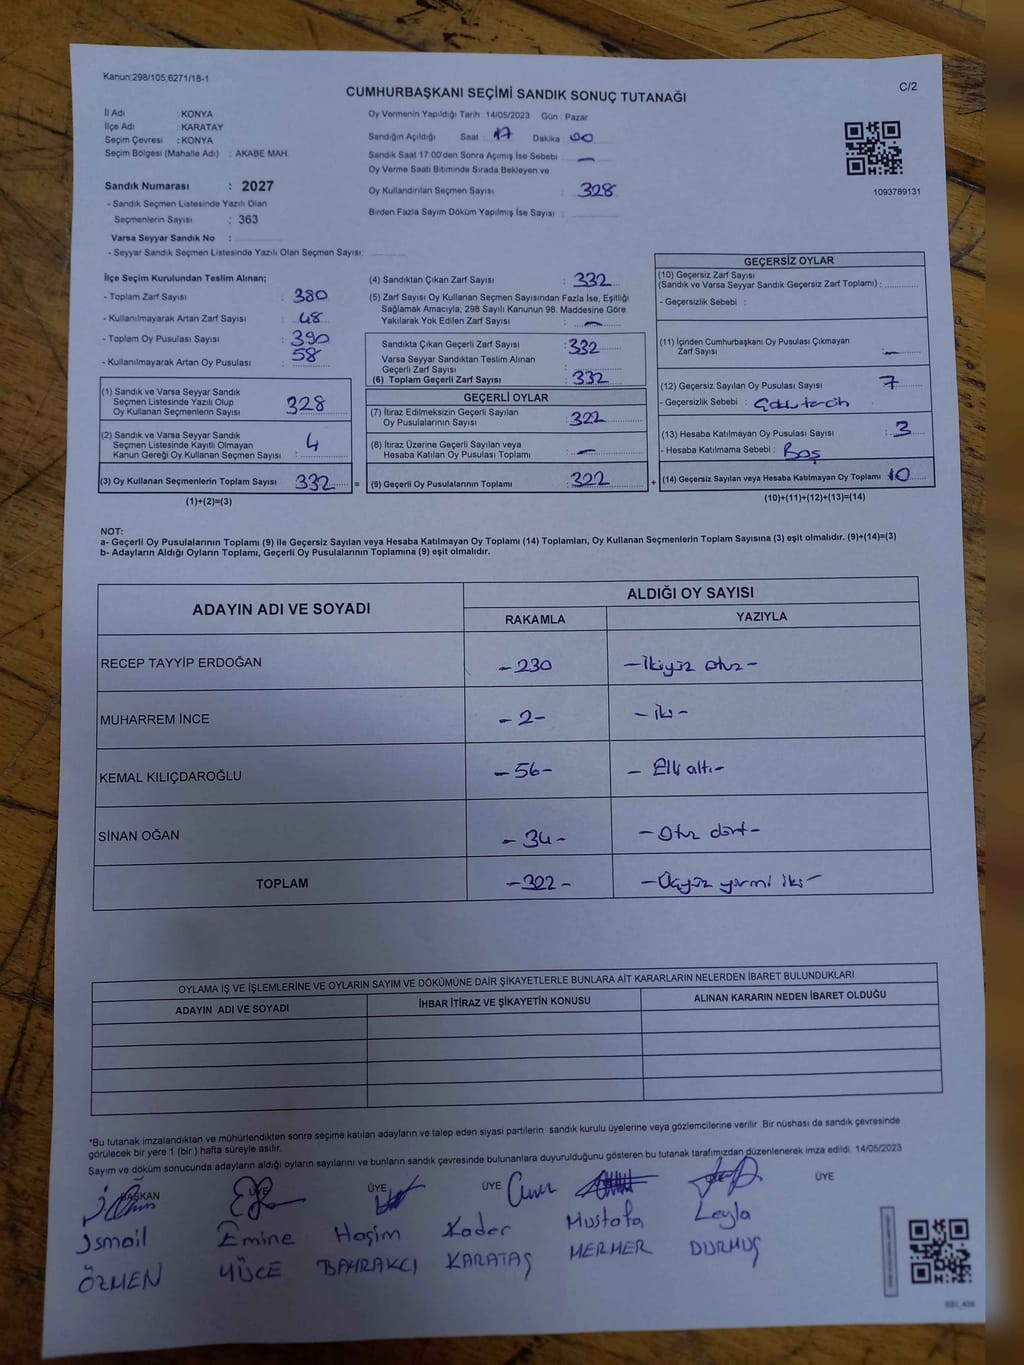 Kanun:298/105,6271/18-1
C/2
CUMHURBAŞKANI SEÇİMİ SANDIK SONUÇ TUTANAĞI
İl Adı : KONYA
İlçe Adı : KARATAY
Seçim Çevresi : KONYA
Seçim Bölgesi (Mahalle Adı) : AKABE MAH.
Oy Vermenin Yapıldığı Tarih :14/05/2023 Gün : Pazar
Sandığın Açıldığı Saat : 17 Dakika : 00
Sandık Saat 17:00'den Sonra Açımış İse Sebebi : —
Oy Verme Saati Bitiminde Sırada Bekleyen ve
Oy Kullandırılan Seçmen Sayısı : 328
Birden Fazla Sayım Döküm Yapılmış İse Sayısı :
1093789131
Sandık Numarası : 2027
- Sandık Seçmen Listesinde Yazılı Olan
Seçmenlerin Sayısı : 363
Varsa Seyyar Sandık No :
- Seyyar Sandık Seçmen Listesinde Yazılı Olan Seçmen Sayısı:
İlçe Seçim Kurulundan Teslim Alınan;
- Toplam Zarf Sayısı : 380
- Kullanılmayarak Artan Zarf Sayısı : 48
- Toplam Oy Pusulası Sayısı : 390
- Kullanılmayarak Artan Oy Pusulası : 58
(1) Sandık ve Varsa Seyyar Sandık
Seçmen Listesinde Yazılı Olup
Oy Kullanan Seçmenlerin Sayısı : 328
(2) Sandık ve Varsa Seyyar Sandık
Seçmen Listesinde Kayıtlı Olmayan
Kanun Gereği Oy Kullanan Seçmen Sayısı : 4
(3) Oy Kullanan Seçmenlerin Toplam Sayısı : 332 =
(1)+(2)=(3)
(4) Sandıktan Çıkan Zarf Sayısı : 332
(5) Zarf Sayısı Oy Kullanan Seçmen Sayısından Fazla İse, Eşitliği
Sağlamak Amacıyla; 298 Sayılı Kanunun 98. Maddesine Göre
Yakılarak Yok Edilen Zarf Sayısı : —
Sandıkta Çıkan Geçerli Zarf Sayısı : 332
Varsa Seyyar Sandıktan Teslim Alınan
Geçerli Zarf Sayısı :
(6) Toplam Geçerli Zarf Sayısı : 332
GEÇERLİ OYLAR
(7) İtiraz Edilmeksizin Geçerli Sayılan
Oy Pusulalarının Sayısı : 322
(8) İtiraz Üzerine Geçerli Sayılan veya
Hesaba Katılan Oy Pusulası Toplamı : —
(9) Geçerli Oy Pusulalarının Toplamı : 322 +
GEÇERSİZ OYLAR
(10) Geçersiz Zarf Sayısı
(Sandık ve Varsa Seyyar Sandık Geçersiz Zarf Toplamı) :
- Geçersizlik Sebebi :
(11) İçinden Cumhurbaşkanı Oy Pusulası Çıkmayan
Zarf Sayısı : —
(12) Geçersiz Sayılan Oy Pusulası Sayısı : 7
- Geçersizlik Sebebi : Çoklu tercih
(13) Hesaba Katılmayan Oy Pusulası Sayısı : 3
- Hesaba Katılmama Sebebi : Boş
(14) Geçersiz Sayılan veya Hesaba Katılmayan Oy Toplamı : 10
(10)+(11)+(12)+(13)=(14)
NOT:
a- Geçerli Oy Pusulalarının Toplamı (9) ile Geçersiz Sayılan veya Hesaba Katılmayan Oy Toplamı (14) Toplamları, Oy Kullanan Seçmenlerin Toplam Sayısına (3) eşit olmalıdır. (9)+(14)=(3)
b- Adayların Aldığı Oyların Toplamı, Geçerli Oy Pusulalarının Toplamına (9) eşit olmalıdır.
ADAYIN ADI VE SOYADI
ALDIĞI OY SAYISI
RAKAMLA YAZIYLA
RECEP TAYYİP ERDOĞAN -230 -İkiyüz otuz-
MUHARREM İNCE -2- -iki-
KEMAL KILIÇDAROĞLU -56- - Elli altı-
SİNAN OĞAN -34- -Otuz dört-
TOPLAM -322- -Üçyüz yirmi iki-
OYLAMA İŞ VE İŞLEMLERİNE VE OYLARIN SAYIM VE DÖKÜMÜNE DAİR ŞİKAYETLERLE BUNLARA AİT KARARLARIN NELERDEN İBARET BULUNDUKLARI
ADAYIN ADI VE SOYADI İHBAR İTİRAZ VE ŞİKAYETİN KONUSU ALINAN KARARIN NEDEN İBARET OLDUĞU
*Bu tutanak imzalandıktan ve mühürlendikten sonra seçime katılan adayların ve talep eden siyasi partilerin sandık kurulu üyelerine veya gözlemcilerine verilir. Bir nüshası da sandık çevresinde
görülecek bir yere 1 (bir ) hafta süreyle asılır.
Sayım ve döküm sonucunda adayların aldığı oyların sayılarını ve bunların sandık çevresinde bulunanlara duyurulduğunu gösteren bu tutanak tarafımızdan düzenlenerek imza edildi. 14/05/2023
BAŞKAN ÜYE ÜYE ÜYE ÜYE
İsmail Emine Haşim Kader Mustafa Leyla
ÖZMEN YÜCE BAYRAKCI KARATAŞ MERMER DURMUŞ